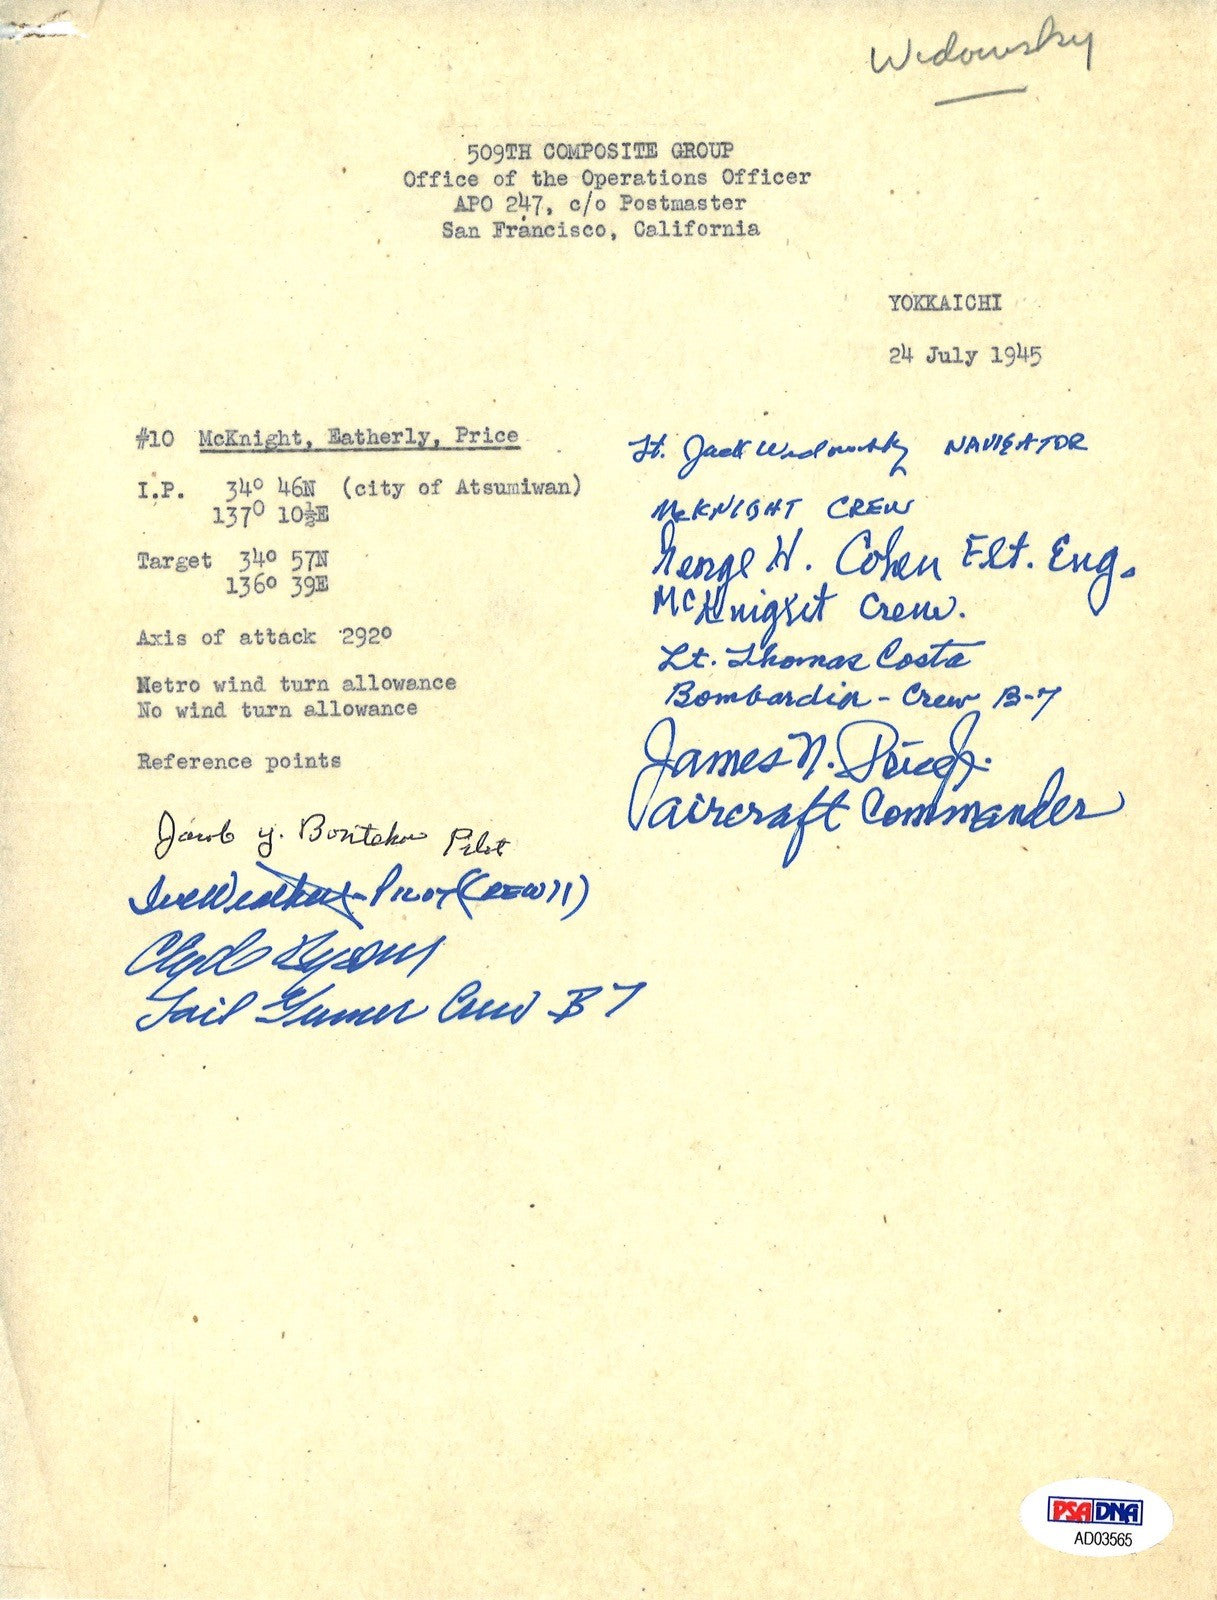 Widowsky
509TH COMPOSITE GROUP
Office of the Operations Officer
APO 247, c/o Postmaster
San Francisco, California
YOKKAICHI
24 July 1945
#10 McKnight, Eatherly, Price
I.P. 34° 46N (city of Atsumiwan)
137° 10½E
Target 34° 57N
136° 39E
Axis of attack 292°
Metro wind turn allowance
No wind turn allowance
Reference points
Jacob Y. Bontekoe Pilot
Pilot (Crew 11)
Clyde Bysom
Tail Gunner Crew B 7
Lt. Jack Widowsky NAVIGATOR
McKNIGHT CREW
George H. Cohen Flt. Eng.
McKnight Crew.
Lt. Thomas Costa
Bombardier - Crew B-7
James N. Price Jr.
aircraft Commander
PSA DNA
AD03565